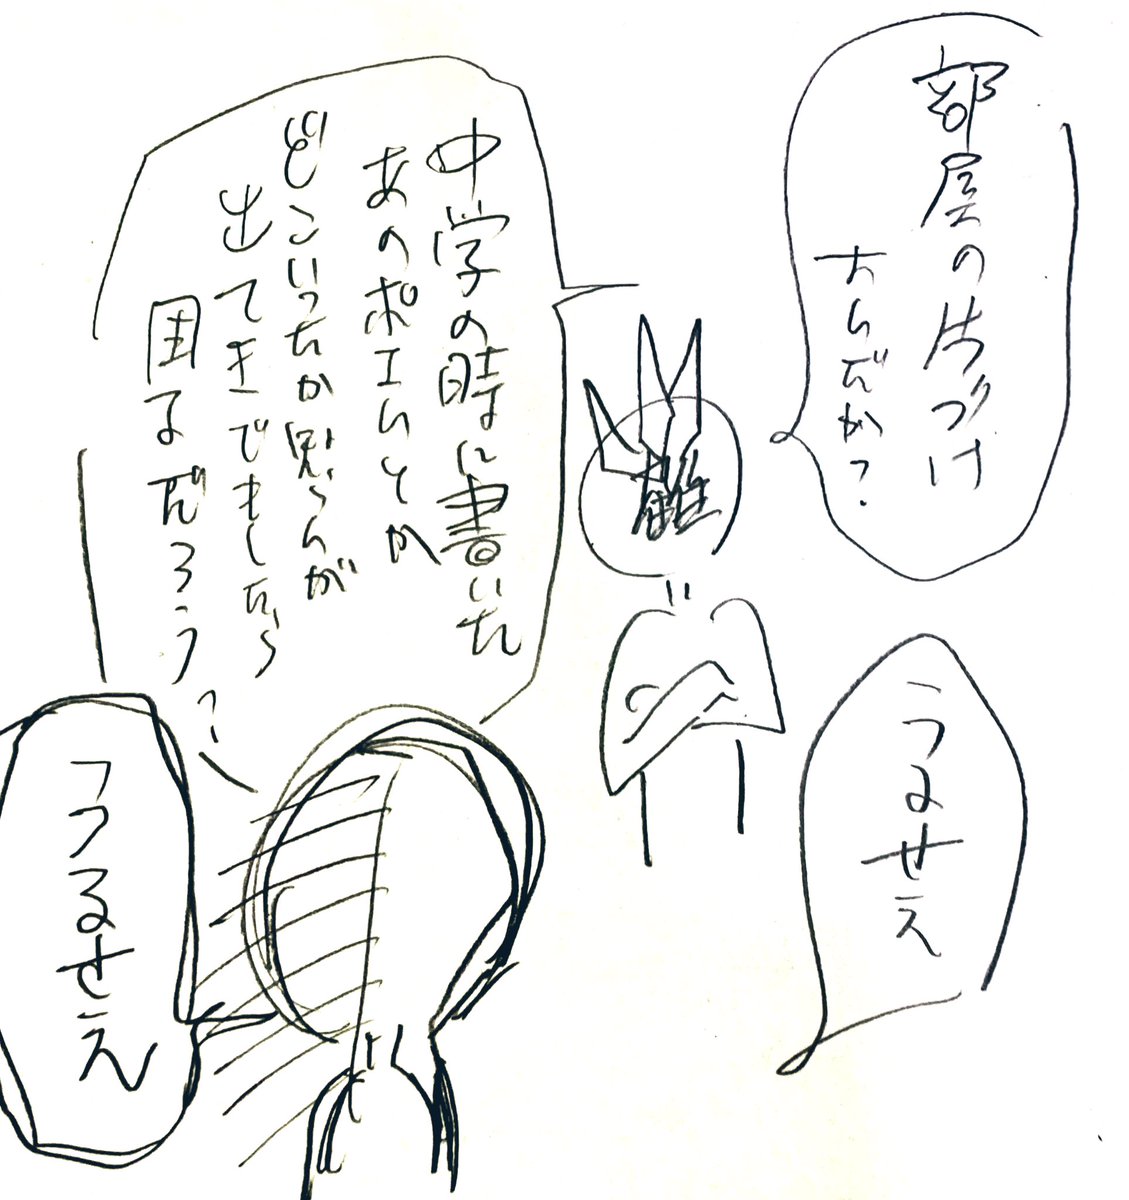 部屋の片づけ
大じょうぶか?
うるせえ
中学の時に書いた
あのポエムとか
どこいったか知らんが
出てきでもしたら
困るだろう
うるせえ